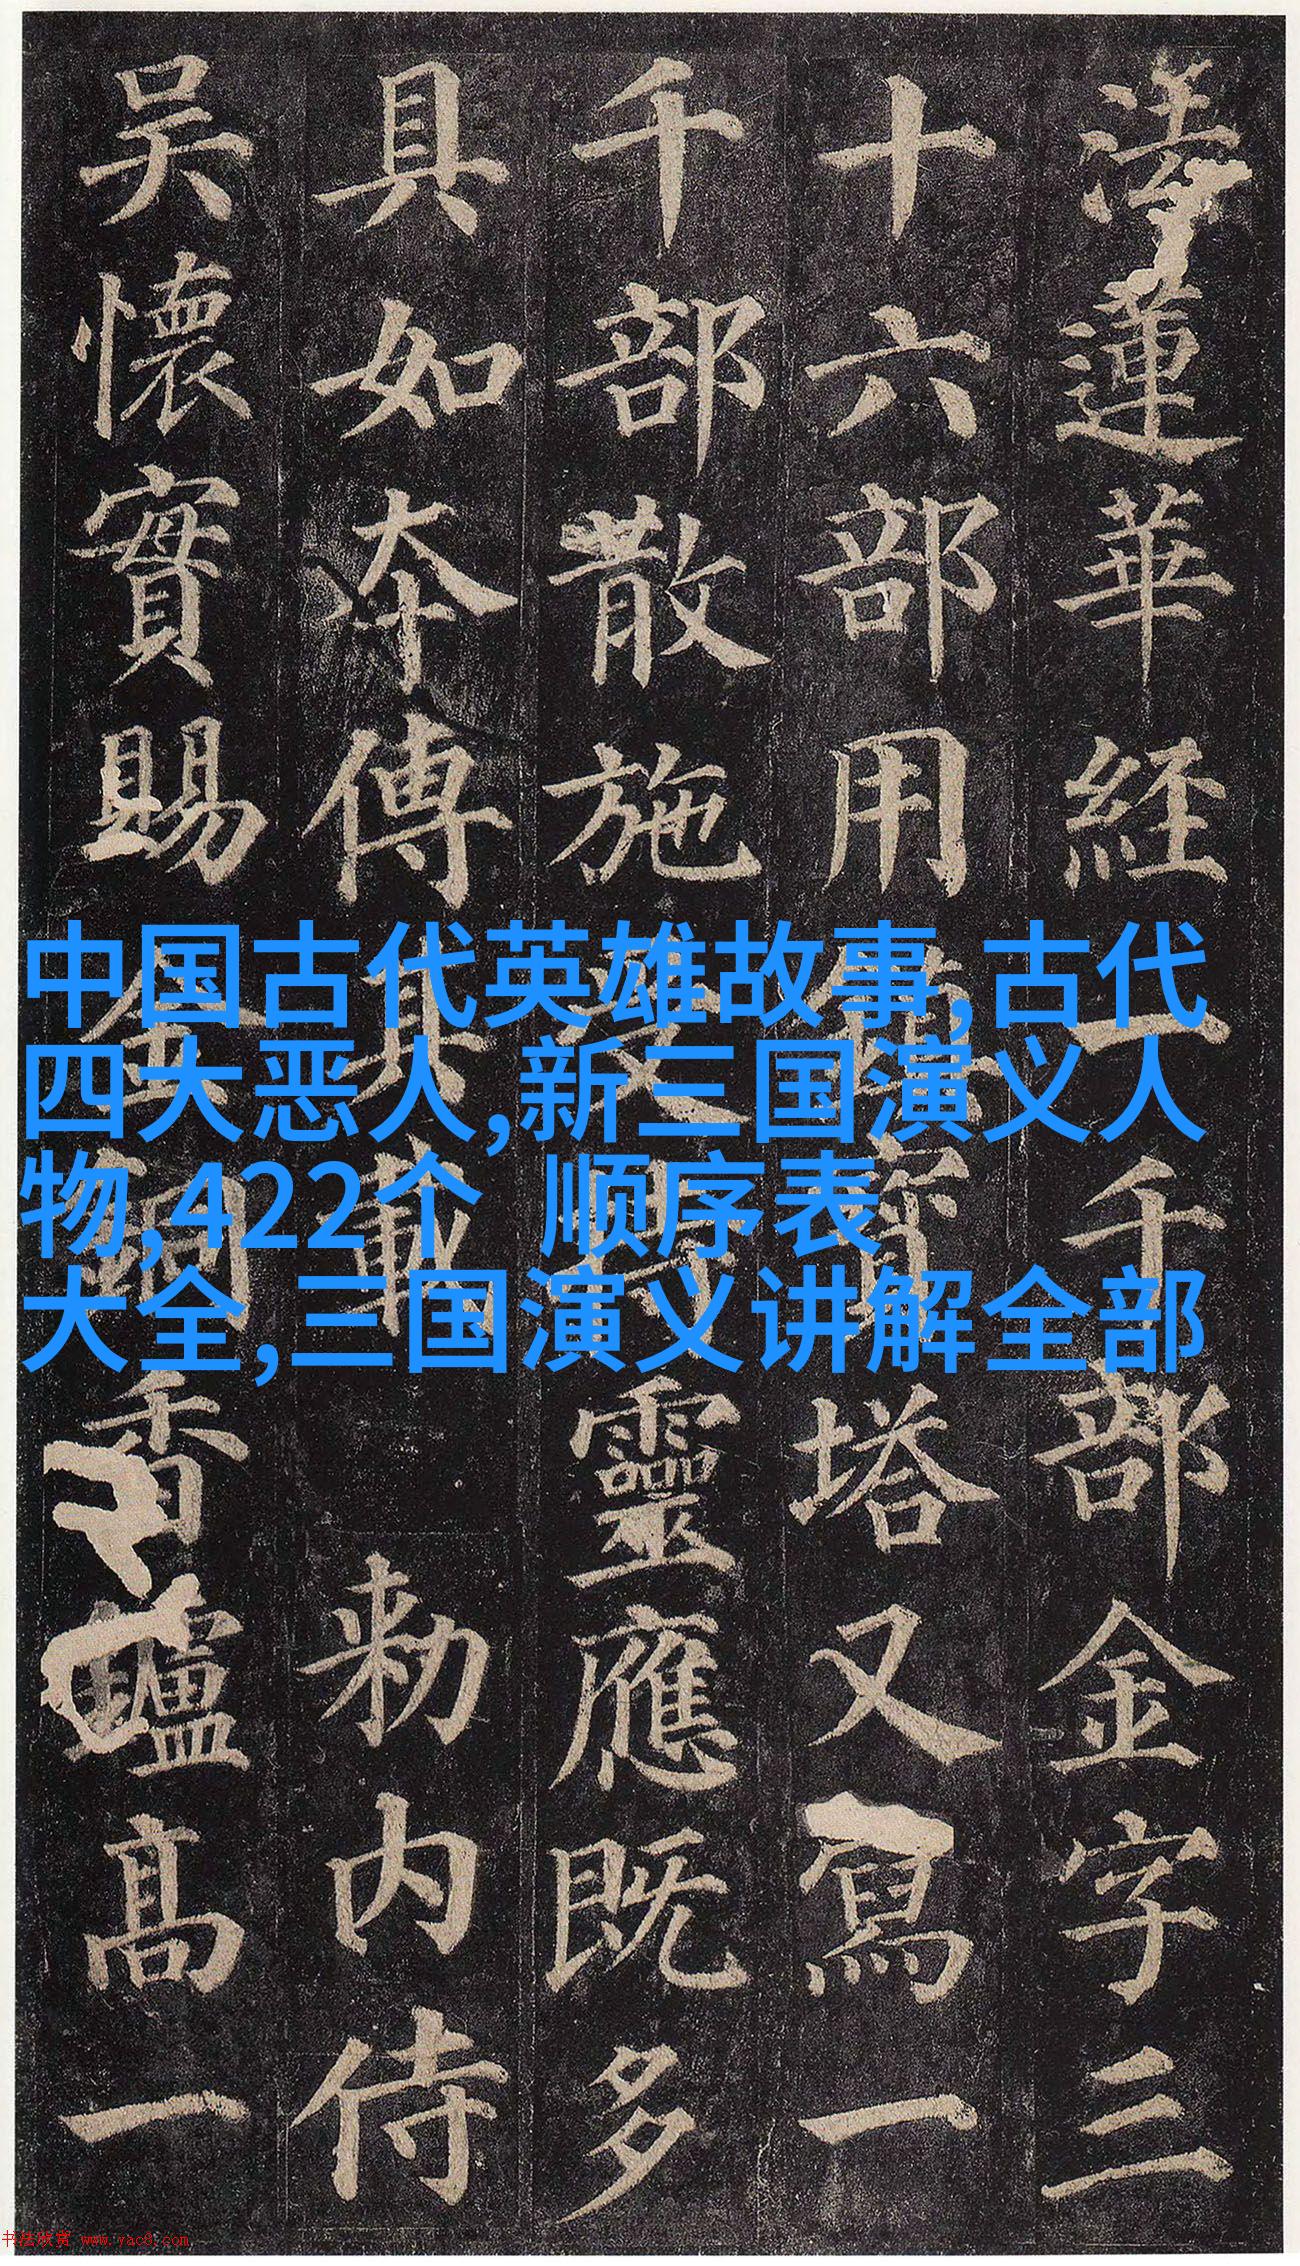 法蓮華經一千部金字三
十六部用鎮寶塔又寫一
千部散施受持靈應既多
具如夲傳其載勅内侍
吳懷實賜金銅香爐高一
中国古代英雄故事,古代
四大恶人,新三国演义人
物,422个 顺序表
大全,三国演义讲解全部
书法欣赏 www.yac8.com